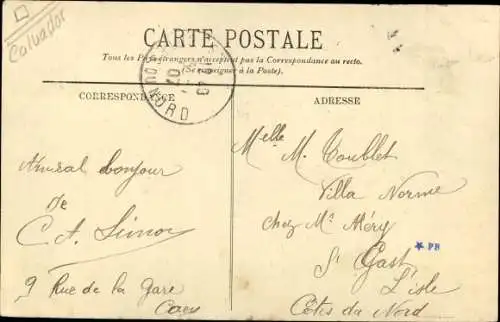 Calvados
CARTE POSTALE
Tous les Pays étrangers n'acceptent pas la Correspondance au recto.
(Se renseigner à la Poste).
CORRESPONDANCE
ADRESSE
NORD
Amical bonjour
de
C A Simon
9 Rue de la Gare
Caen
Melle M. Toublet
Villa Norme
chez Mr Méry
St Cast
* PB
L'isle
Côtes du Nord